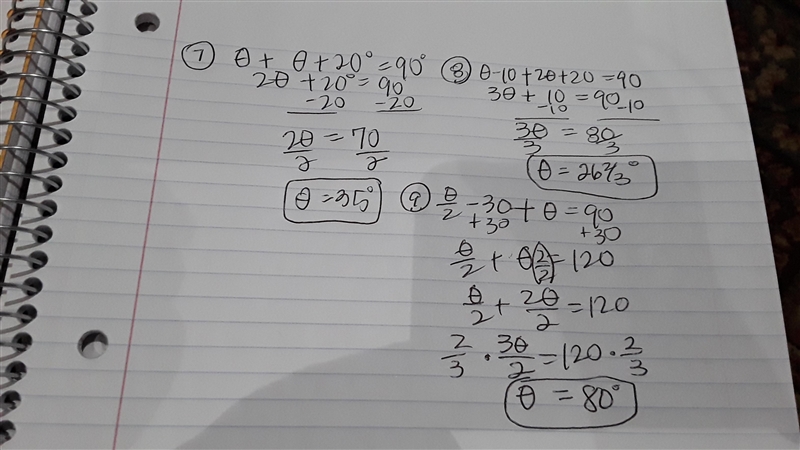 ⑦ θ + θ + 20° = 90°
2θ + 20° = 90
-20 -20
2θ/2 = 70/2
θ = 35°
⑧ θ-10+2θ+20 = 90
3θ + 10 = 90
-10 -10
3θ/3 = 80/3
θ = 26 2/3°
⑨ θ/2 - 30 + θ = 90
+30 +30
θ/2 + θ(2/2) = 120
θ/2 + 2θ/2 = 120
2/3 · 3θ/2 = 120 · 2/3
θ = 80°